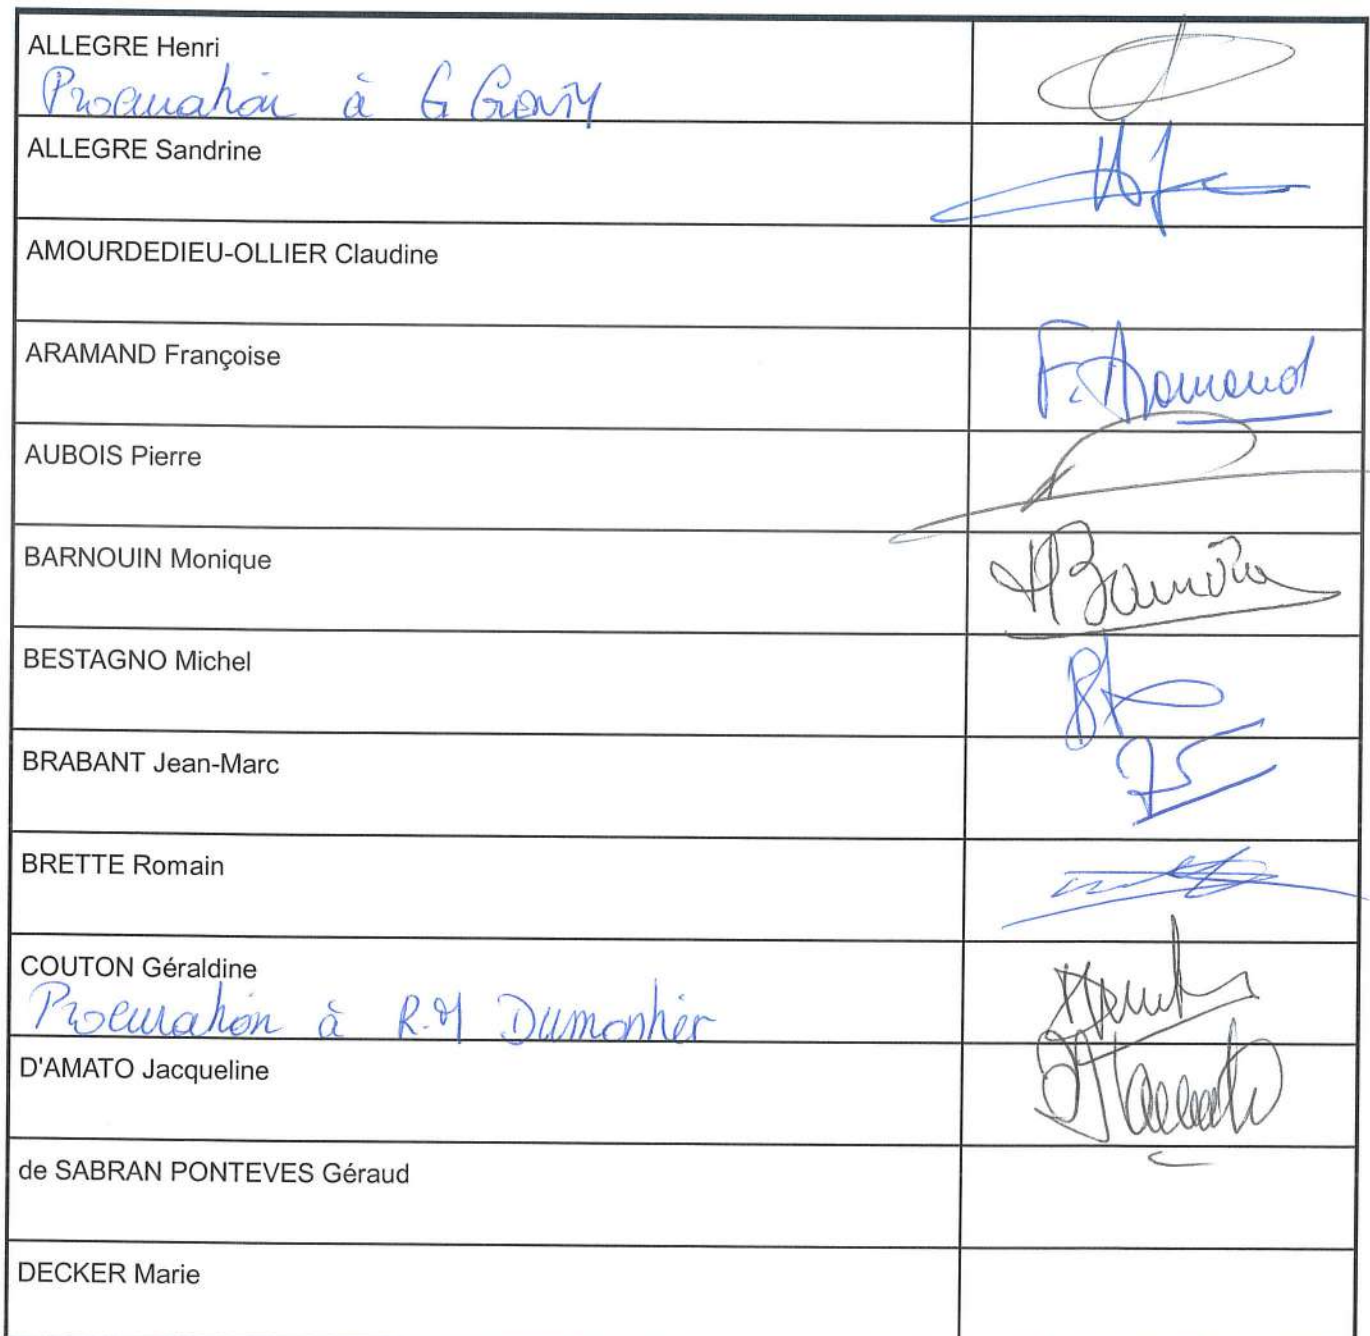 ALLEGRE Henri
Procuration à G
ALLEGRE Sandrine
AMOURDEDIEU-OLLIER Claudine
ARAMAND Françoise
F. Aramand
AUBOIS Pierre
BARNOUIN Monique
BESTAGNO Michel
BRABANT Jean-Marc
BRETTE Romain
COUTON Géraldine
Procuration à R.M Dumontier
D'AMATO Jacqueline
de SABRAN PONTEVES Géraud
DECKER Marie